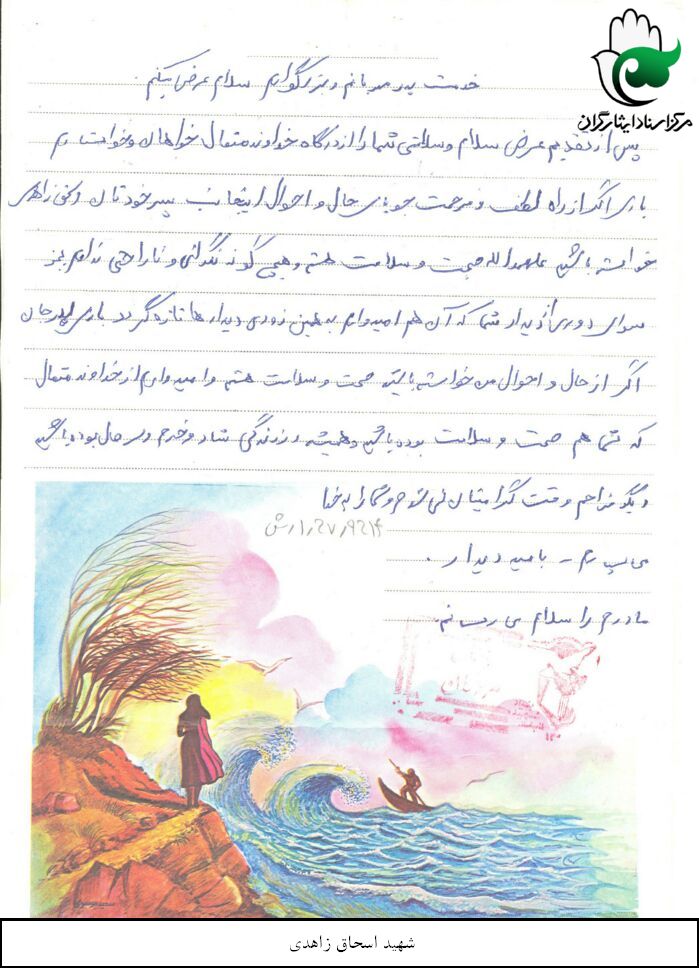 مرکز اسناد ایثارگران
خدمت پدر مهربانم و بزرگوارم سلام عرض میکنم.
پس از تقدیم عرض سلام و سلامتی شما را از درگاه خداوند متعال خواهان و خواست
باری اگر از راه لطف و مرحمت جویای حال و احوال اینجانب پسر خودتان
خواسته باشید صحت و سلامت هستم و هیچ گونه نگرانی و ناراحتی ندارم بجز
سوای دوری از دیدار شما که آن هم امیدوارم به همین زودی دیدارها تازه گردد باری پدرجان
اگر از حال و احوال من خواسته باشید صحت و سلامت هستم و امیدوارم از خداوند متعال
که شما هم صحت و سلامت بوده باشید و همیشه در زندگی شاد و خرم و سرحال بوده باشید
دیگر مزاحم وقت گرامیتان نمی شوم و شما را به خدا
می سپارم - بامید دیدار .
مادرم را سلام می رسانم.
شهید اسحاق زاهدی